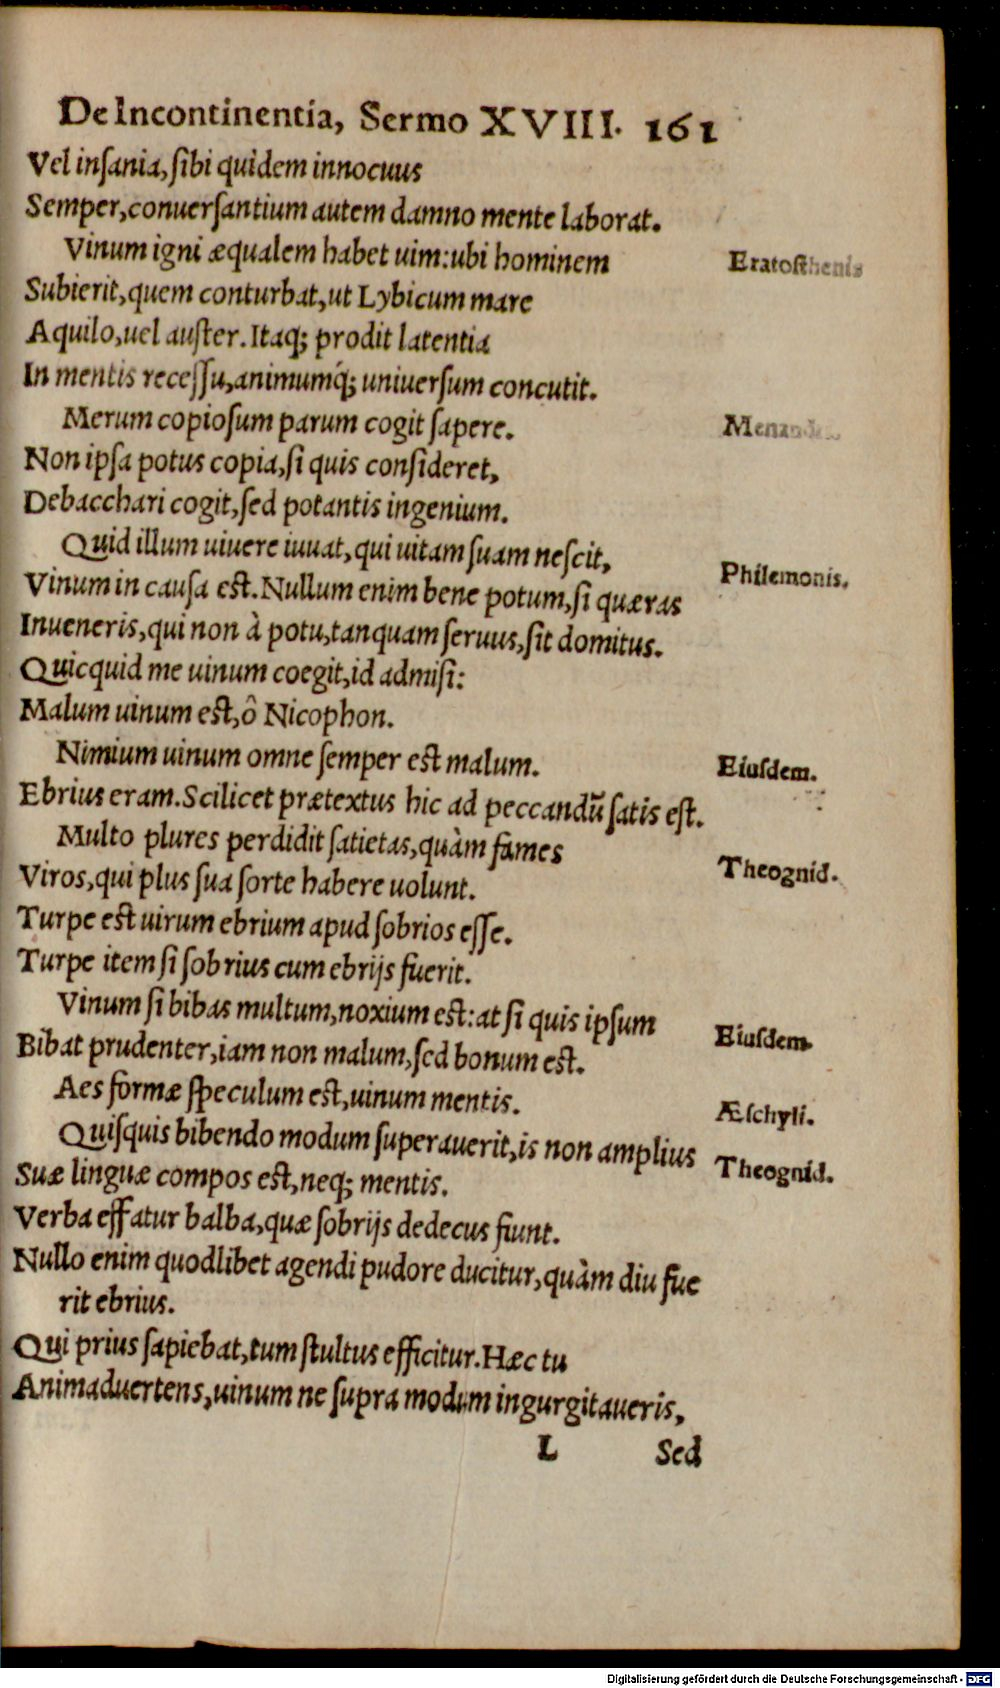 De Incontinentia, Sermo XVIII. 161
Vel inſania, ſibi quidem innocuus
Semper, conuerſantium autem damno mente laborat.
Vinum igni æqualem habet uim: ubi hominem
Eratoſthenis
Subierit, quem conturbat, ut Lybicum mare
Aquilo, uel auſter. Itaq; prodit latentia
In mentis receſſu, animumq́; uniuerſum concutit.
Merum copioſum parum cogit ſapere.
Non ipſa potus copia, ſi quis conſideret,
Debacchari cogit, ſed potantis ingenium.
Quid illum uiuere iuuat, qui uitam ſuam neſcit,
Philemonis.
Vinum in cauſa eſt. Nullum enim bene potum, ſi quæras
Inueneris, qui non à potu, tanquam ſeruus, ſit domitus.
Quicquid me uinum coegit, id admiſi:
Malum uinum eſt, ô Nicophon.
Nimium uinum omne ſemper eſt malum.
Eiuſdem.
Ebrius eram. Scilicet prætextus hic ad peccandũ ſatis eſt.
Multo plures perdidit ſatietas, quàm fames
Theognid.
Viros, qui plus ſua ſorte habere uolunt.
Turpe eſt uirum ebrium apud ſobrios eſſe.
Turpe item ſi ſobrius cum ebrijs fuerit.
Vinum ſi bibas multum, noxium eſt: at ſi quis ipſum
Eiuſdem.
Bibat prudenter, iam non malum, ſed bonum eſt.
Aes formæ ſpeculum eſt, uinum mentis.
Æſchyli.
Quiſquis bibendo modum ſuperauerit, is non amplius
Theognid.
Suæ linguæ compos eſt, neq; mentis.
Verba effatur balba, quæ ſobrijs dedecus fiunt.
Nullo enim quodlibet agendi pudore ducitur, quàm diu fue
rit ebrius.
Qui prius ſapiebat, tum ſtultus efficitur. Hæc tu
Animaduertens, uinum ne ſupra modum ingurgitaueris,
L Sed
Digitalisierung gefördert durch die Deutsche Forschungsgemeinschaft - DFG